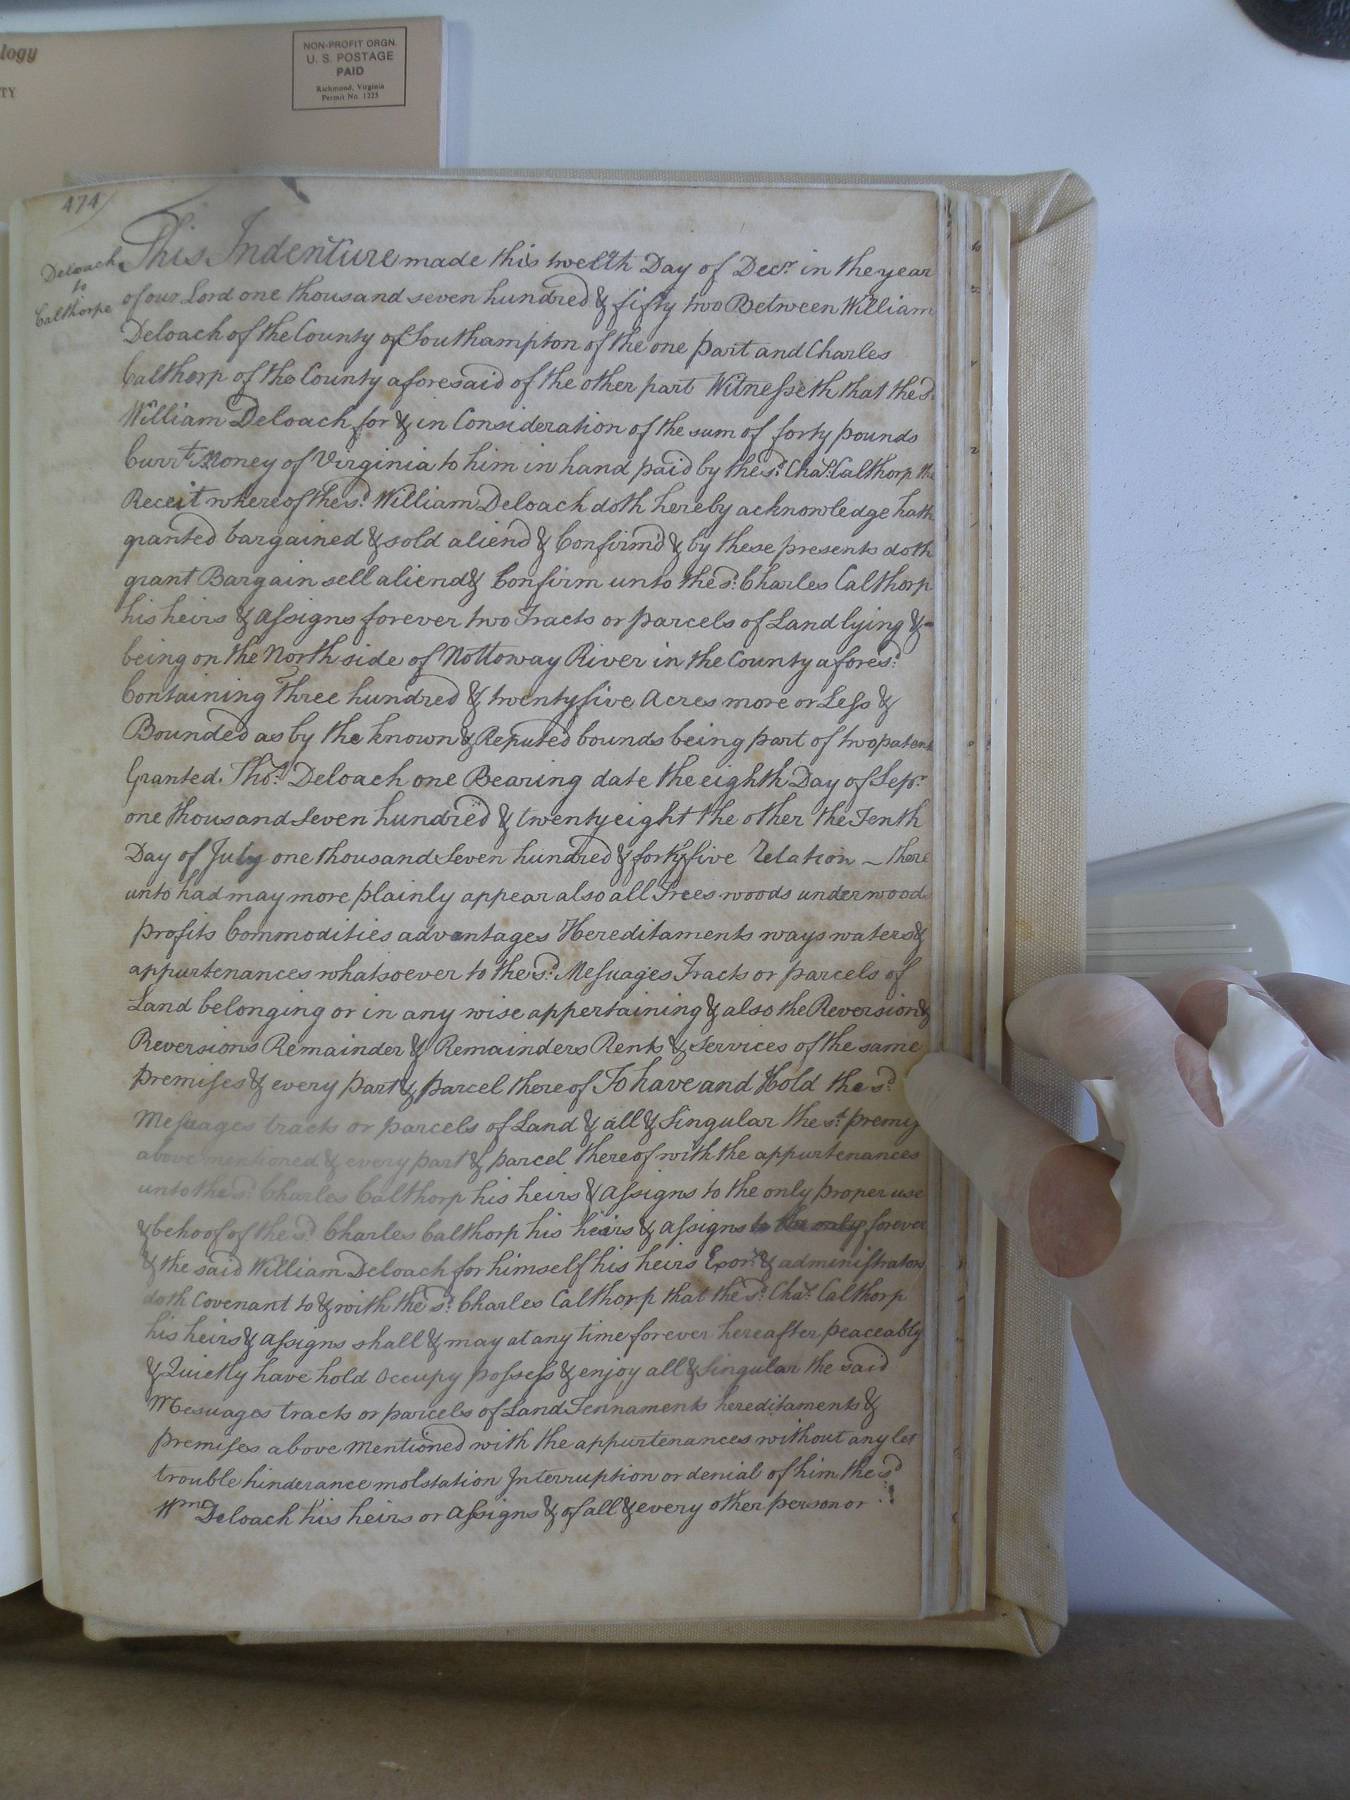 logy
TY
NON-PROFIT ORGN.
U. S. POSTAGE
PAID
Richmond, Virginia
Permit No. 1225
474
Deloach
to
Calthorpe
This Indenture made this twelth Day of Decr. in the year
of our Lord one thousand seven hundred & fifty two Between William
Deloach of the County of Southampton of the one part and Charles
Calthorp of the County aforesaid of the other part Witnesseth that the sd.
William Deloach for & in Consideration of the sum of forty pounds
Currt. Money of Virginia to him in hand paid by the sd. Chas. Calthorp the
Receit whereof the sd. William Deloach doth hereby acknowledge hath
granted bargained & sold aliend & Confirm'd & by these presents doth
grant Bargain sell aliend & Confirm unto the sd. Charles Calthorp
his heirs & assigns forever two Tracts or parcels of Land lying &
being on the North side of Nottoway River in the County aforesd.
Containing Three hundred & twenty five Acres more or Less &
Bounded as by the known & Reputed bounds being part of two patent
Granted Thos. Deloach one Bearing date the eighth Day of Sepr.
one thousand seven hundred & twenty eight the other the Tenth
Day of July one thousand seven hundred & forty five relation there
unto had may more plainly appear also all Trees woods underwoods
profits Commodities advantages Hereditaments ways waters &
appurtenances whatsoever to the sd. Messuages Tracts or parcels of
Land belonging or in any wise appertaining & also the Reversion &
Reversions Remainder & Remainders Rents & Services of the same
premises & every part & parcel there of To have and Hold the sd.
Messuages tracts or parcels of Land & all & Singular the sd. premis
above mentioned & every part & parcel thereof with the appurtenances
unto the sd. Charles Calthorp his heirs & assigns to the only proper use
& behoof of the sd. Charles Calthorp his heirs & assigns to the only forever
& the said William Deloach for himself his heirs Exors. & administrators
doth Covenant to & with the sd. Charles Calthorp that the sd. Chas. Calthorp
his heirs & assigns shall & may at any time forever hereafter peaceably
& Quietly have hold occupy possess & enjoy all & Singular the said
Mesuages tracts or parcels of Land Tennaments hereditaments &
premises above mentioned with the appurtenances without any let
trouble hinderance molstation Interruption or denial of him the sd
Wm Deloach his heirs or assigns & of all & every other person or